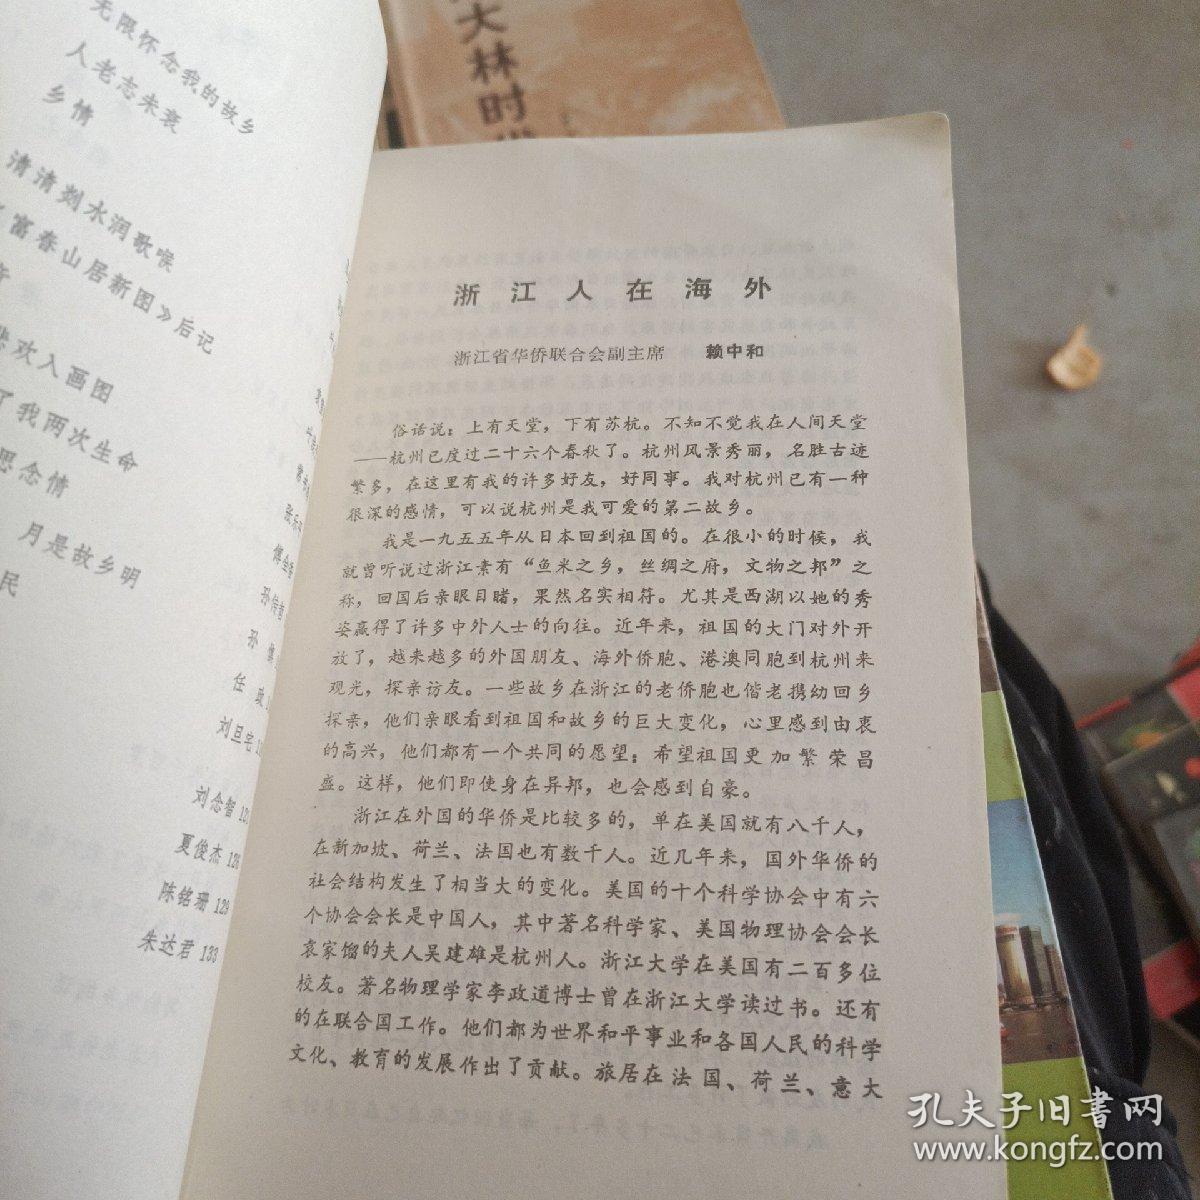 大林时
无限怀念我的故乡
人老志未衰
乡情
清清剡水润歌喉
富春山居新图》后记
欢入画图
了我两次生命
思念情
月是故乡明
民
张乐
任政
刘旦宅
刘念智 12
夏俊杰 126
陈铭珊 129
朱达君 133
浙江人在海外
浙江省华侨联合会副主席 赖中和
俗话说：上有天堂，下有苏杭。不知不觉我在人间天堂
——杭州已度过二十六个春秋了。杭州风景秀丽，名胜古迹
繁多，在这里有我的许多好友，好同事。我对杭州已有一种
很深的感情，可以说杭州是我可爱的第二故乡。
我是一九五五年从日本回到祖国的。在很小的时候，我
就曾听说过浙江素有“鱼米之乡，丝绸之府，文物之邦”之
称，回国后亲眼目睹，果然名实相符。尤其是西湖以她的秀
姿赢得了许多中外人士的向往。近年来，祖国的大门对外开
放了，越来越多的外国朋友、海外侨胞、港澳同胞到杭州来
观光，探亲访友。一些故乡在浙江的老侨胞也偕老携幼回乡
探亲，他们亲眼看到祖国和故乡的巨大变化，心里感到由衷
的高兴，他们都有一个共同的愿望：希望祖国更加繁荣昌
盛。这样，他们即使身在异邦，也会感到自豪。
浙江在外国的华侨是比较多的，单在美国就有八千人，
在新加坡、荷兰、法国也有数千人。近几年来，国外华侨的
社会结构发生了相当大的变化。美国的十个科学协会中有六
个协会会长是中国人，其中著名科学家、美国物理协会会长
袁家馏的夫人吴建雄是杭州人。浙江大学在美国有二百多位
校友。著名物理学家李政道博士曾在浙江大学读过书。还有
的在联合国工作。他们都为世界和平事业和各国人民的科学
文化、教育的发展作出了贡献。旅居在法国、荷兰、意大
孔夫子旧书网
www.kongfz.com